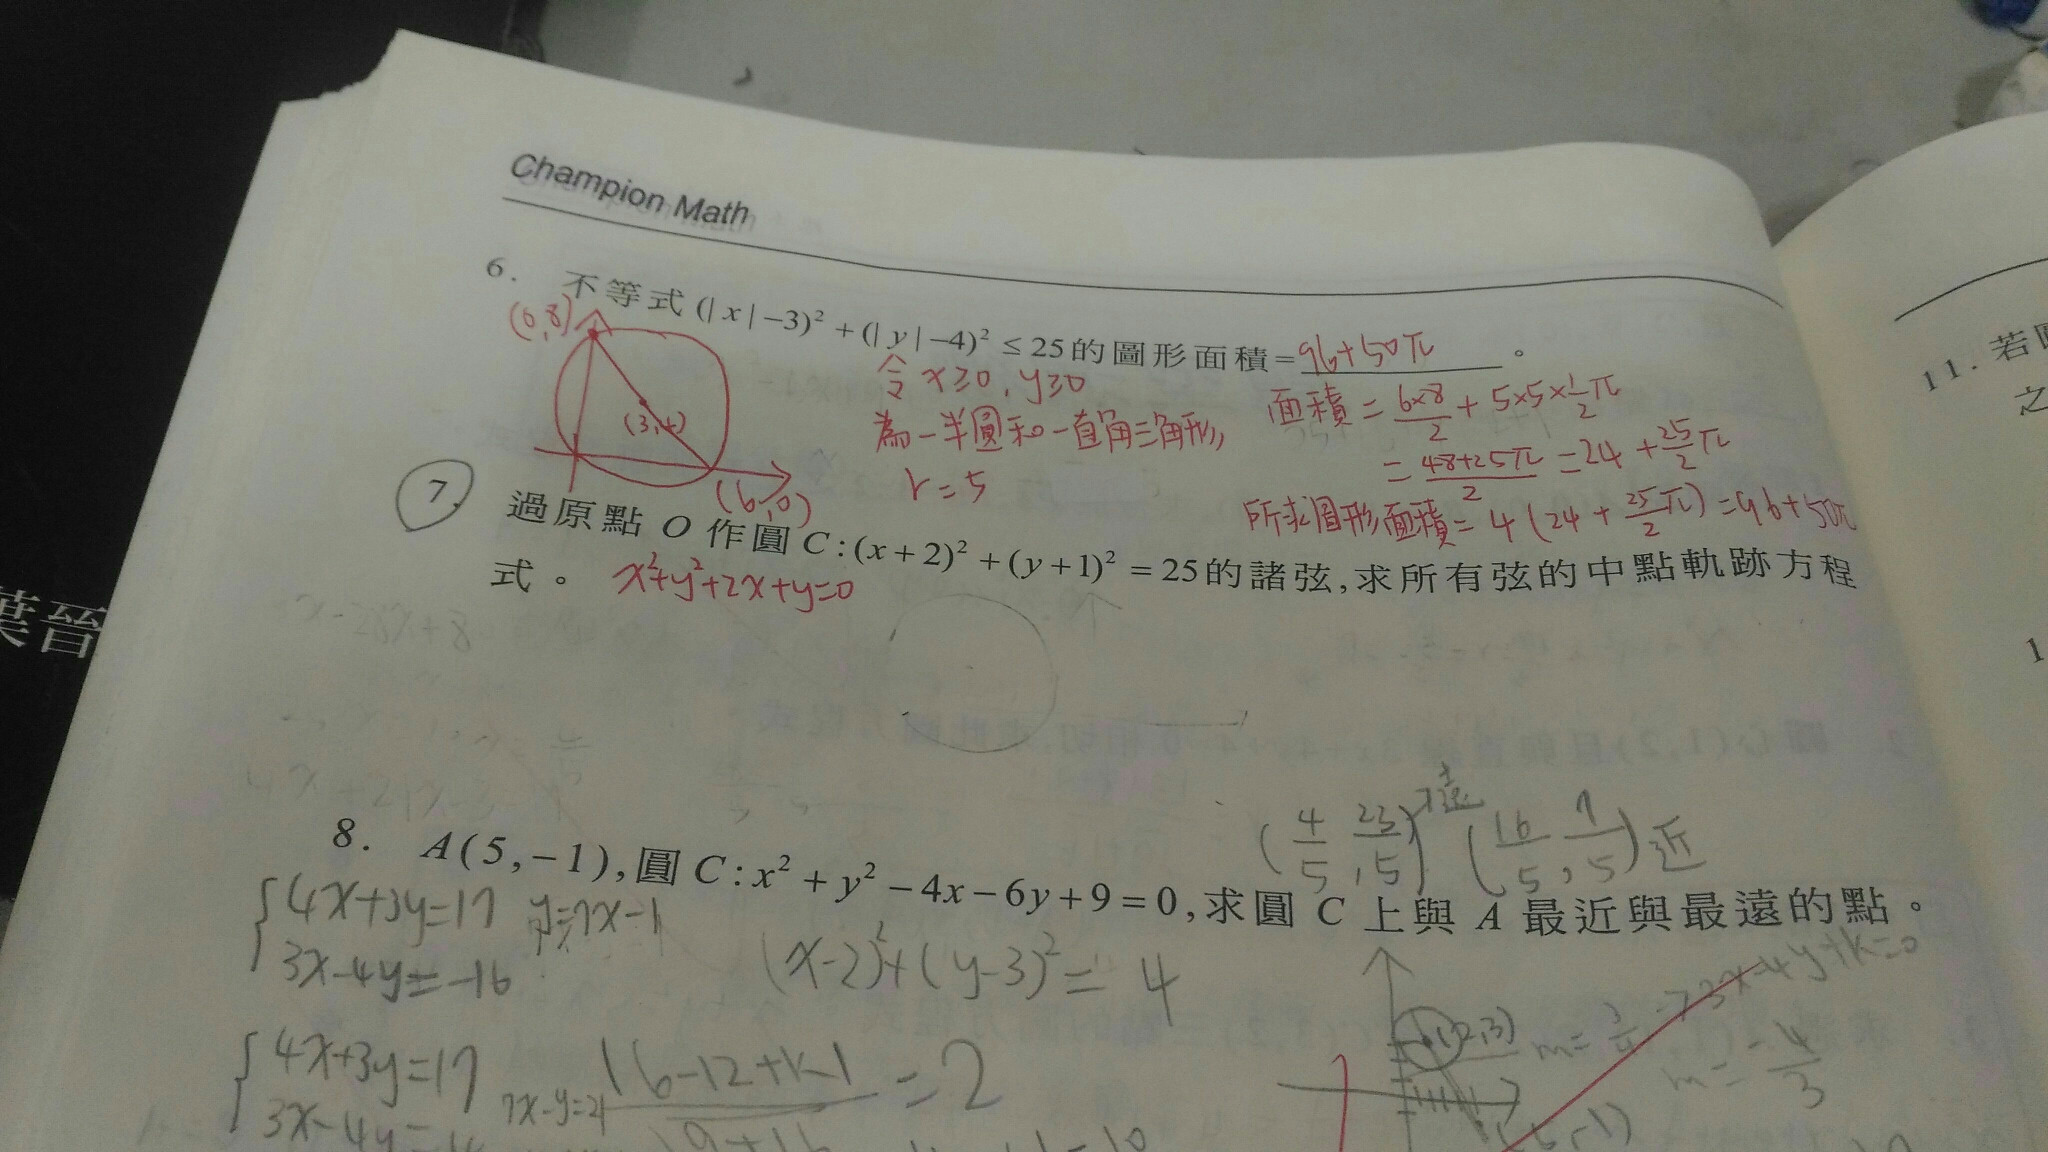 Champion Math
6. 不等式 (|x|−3)² + (|y|−4)² ≤ 25 的圖形面積= 96+50π 。
(0,8)
(3,4)
(6,0)
令 x≥0, y≥0
為一半圓和一直角三角形,
r=5
面積 = 6×8/2 + 5×5×1/2π
= 48+25π/2 = 24 + 25/2π
所求圖形面積 = 4 (24 + 25/2π) = 96+50π
7. 過原點 O 作圓 C:(x+2)² + (y+1)² = 25 的諸弦,求所有弦的中點軌跡方程
式。 x²+y²+2x+y=0
(4/5, 23/5) 遠 (16/5, 7/5) 近
8. A(5,−1),圓 C:x² + y² − 4x − 6y + 9 = 0,求圓 C 上與 A 最近與最遠的點。
4x+3y=17
3x-4y=-16
(x-2)²+(y-3)² = 4
4x+3y=17
7x-y=21
16-12+k1 = 2
(2,3)
3x-4y+k=0
m=-4/3
11. 若
之
葉晉